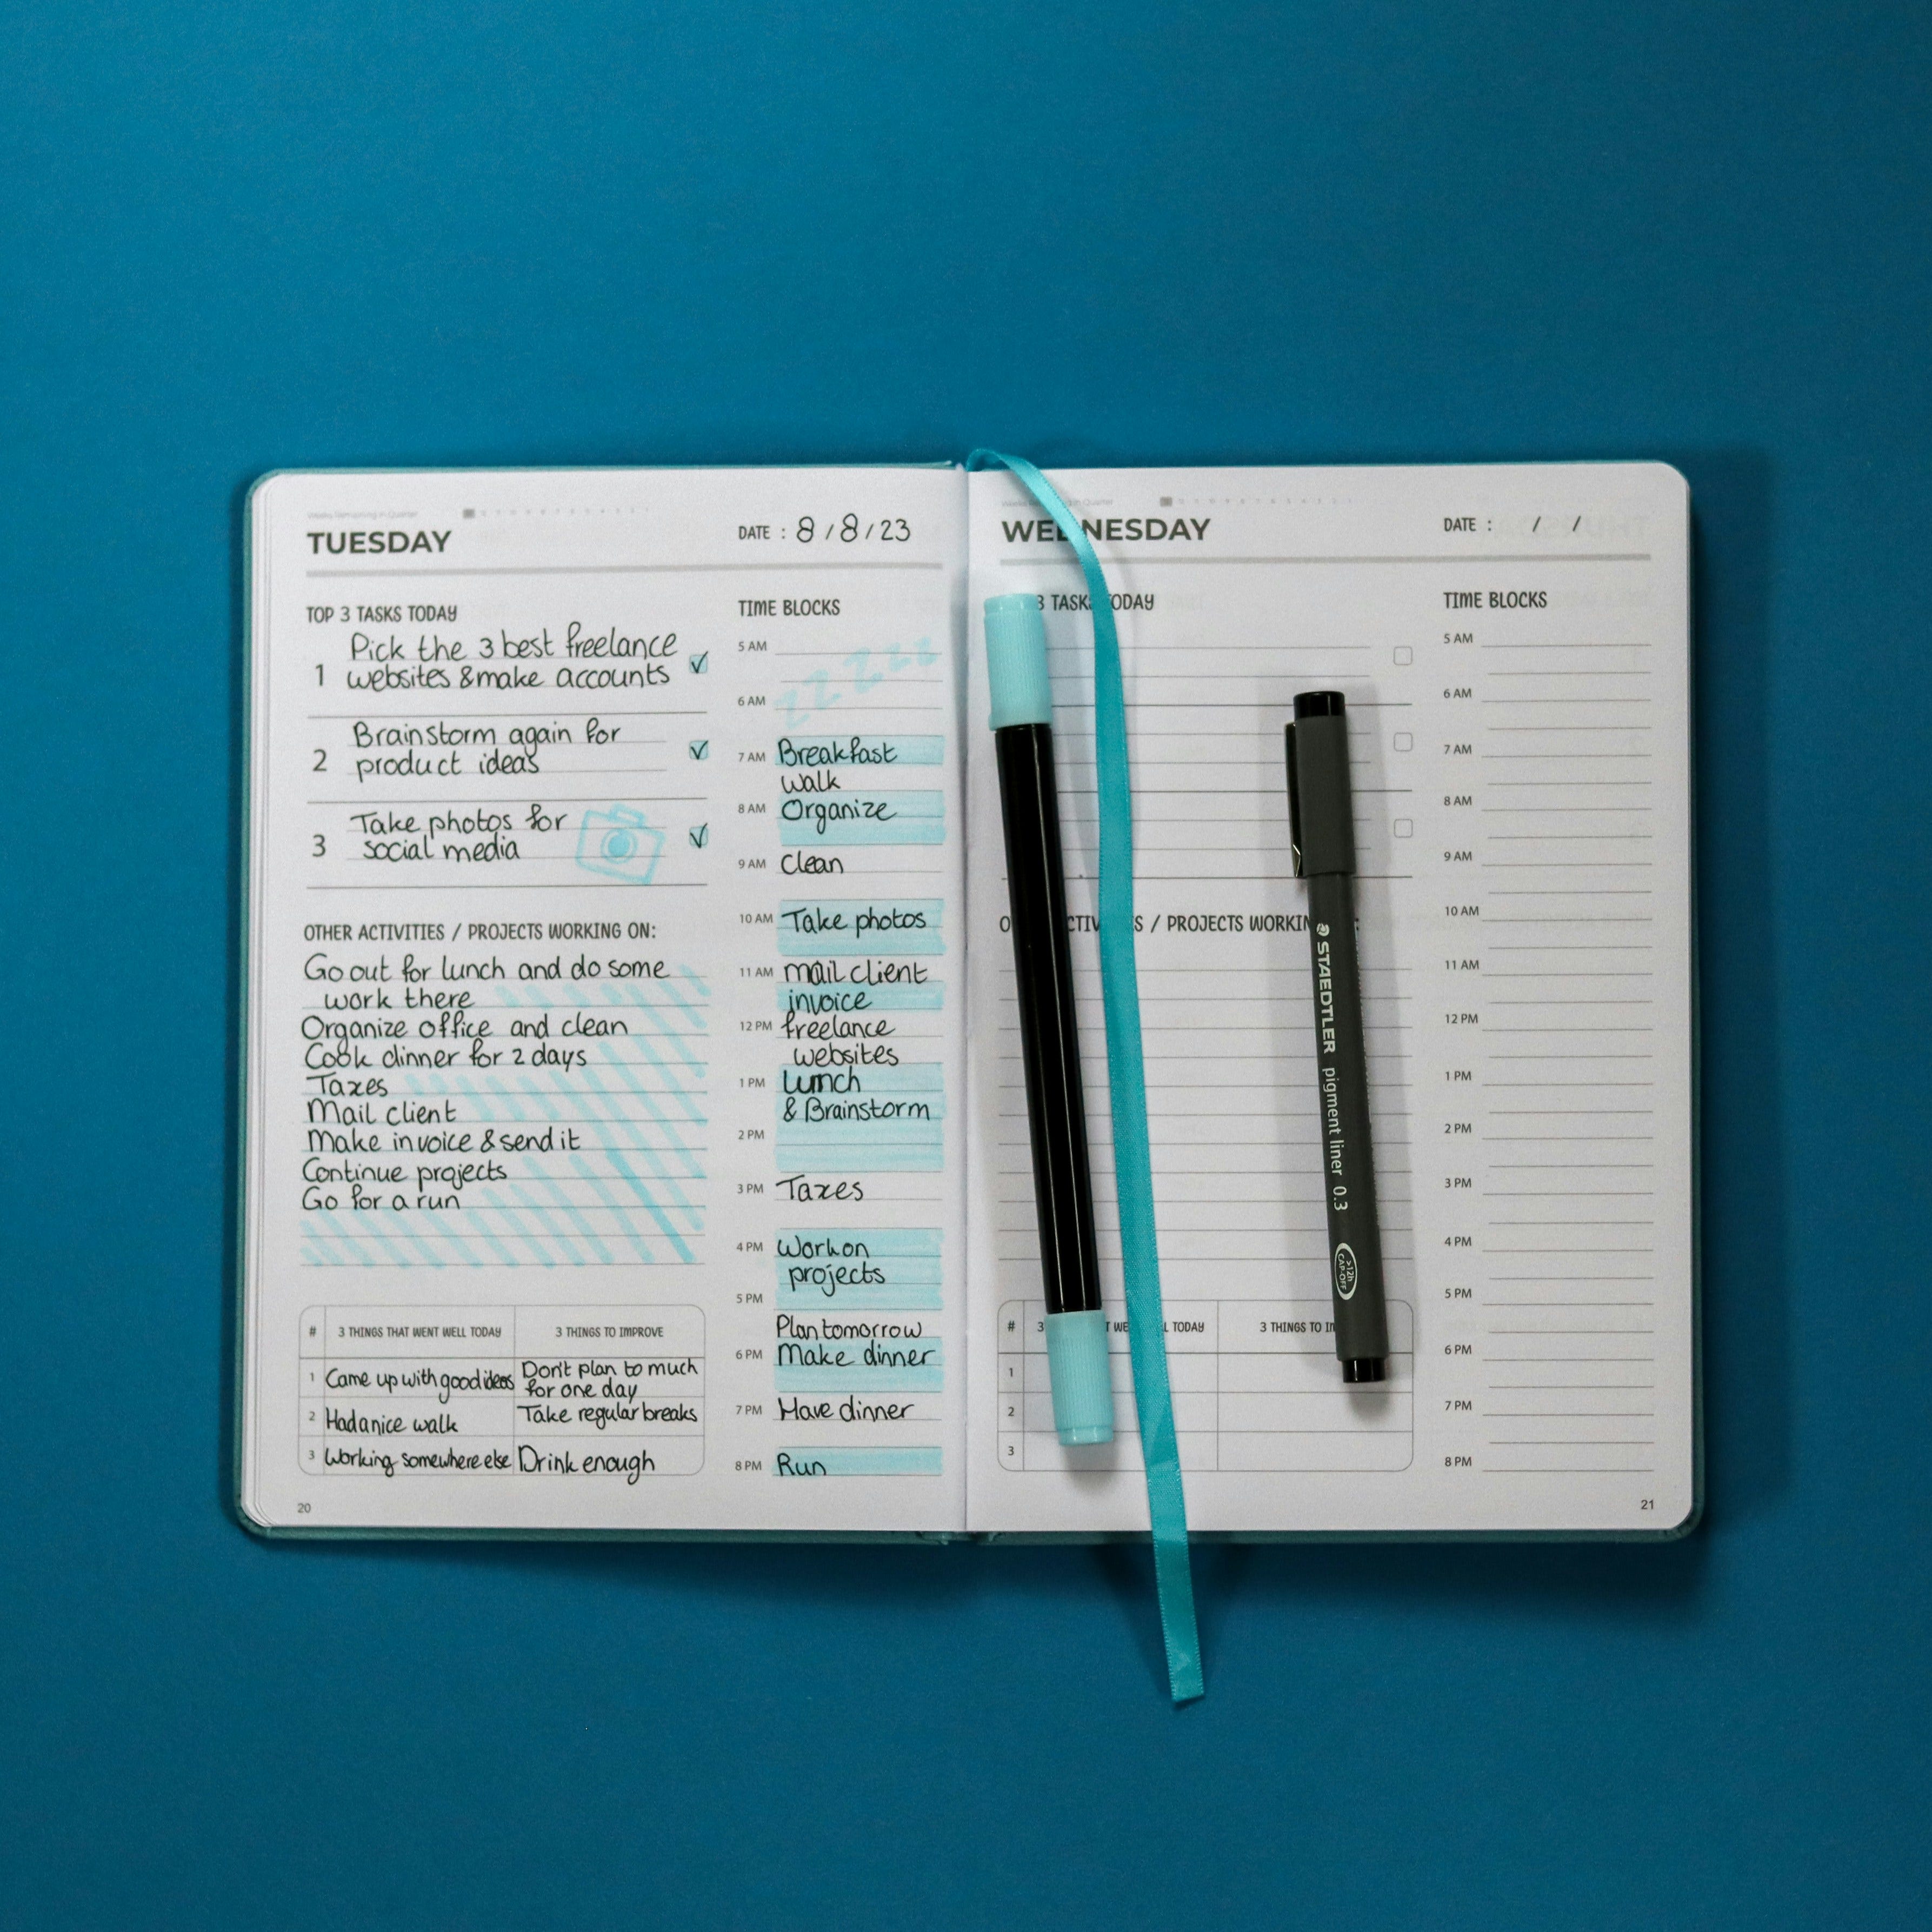 TUESDAY
DATE : 8/8/23
TOP 3 TASKS TODAY
1 Pick the 3 best freelance
websites & make accounts
2 Brainstorm again for
product ideas
3 Take photos for
social media
OTHER ACTIVITIES / PROJECTS WORKING ON:
Go out for lunch and do some
work there
Organize office and clean
Cook dinner for 2 days
Taxes
Mail client
Make invoice & send it
Continue projects
Go for a run
# 3 THINGS THAT WENT WELL TODAY 3 THINGS TO IMPROVE
1 Came up with good ideas Don't plan to much
for one day
2 Had a nice walk Take regular breaks
3 Working somewhere else Drink enough
20
TIME BLOCKS
zzzzzz
5 AM
6 AM
7 AM Breakfast
walk
8 AM Organize
9 AM Clean
10 AM Take photos
11 AM mail client
invoice
12 PM freelance
websites
1 PM Lunch
& Brainstorm
2 PM
3 PM Taxes
4 PM Work on
projects
5 PM
Plan tomorrow
6 PM Make dinner
7 PM Have dinner
8 PM Run
WEDNESDAY
DATE : / /
3 TASKS TODAY
/ PROJECTS WORKING :
# 3 WELL TODAY 3 THINGS TO
1
2
3
TIME BLOCKS
5 AM
6 AM
7 AM
8 AM
9 AM
10 AM
11 AM
12 PM
1 PM
2 PM
3 PM
4 PM
5 PM
6 PM
7 PM
8 PM
21
STAEDTLER pigment liner 0.3
>12h
CAP-OFF